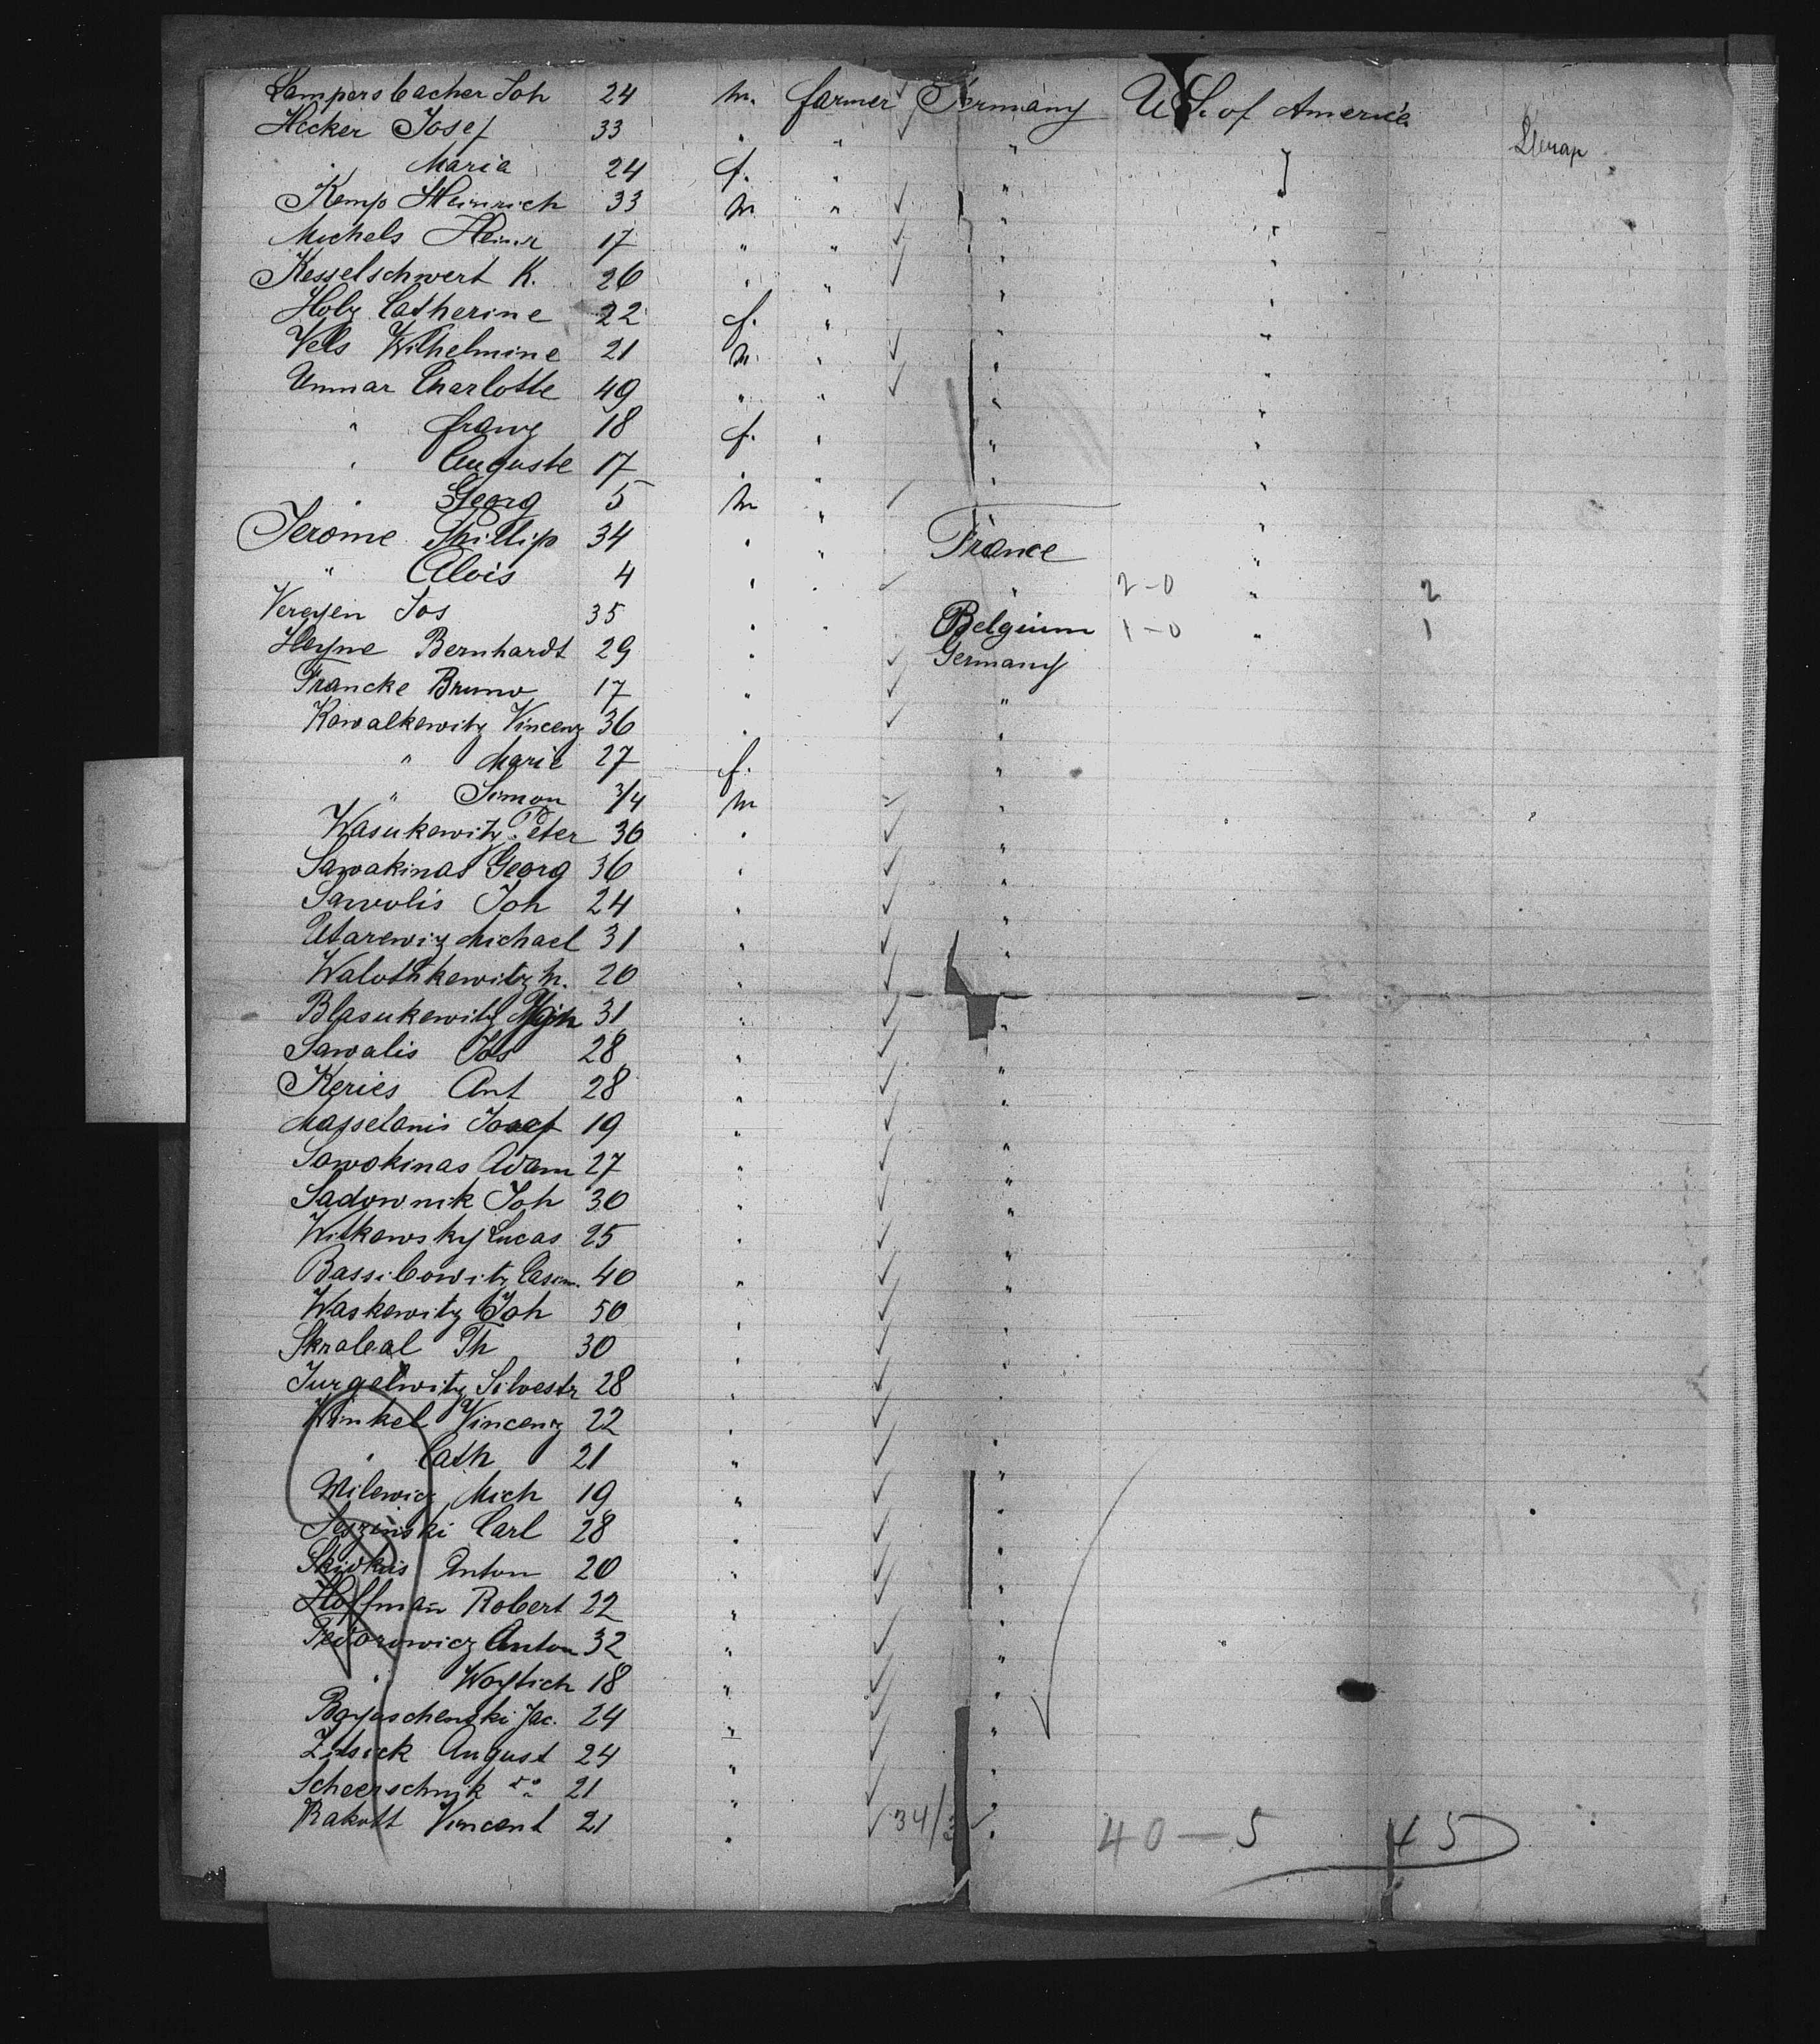 Lampersbacher Joh 24 m. farmer Germany U.S. of America
Hecker Josef 33 " " "
" Maria 24 f. " " "
Kemp Heinrich 33 m " " "
Michels Heinr 17 " " " "
Kesselschwert K. 26 " " " "
Holz Catherine 22 f. " " "
Vels Wilhelmine 21 m. " " "
Unmar Charlotte 49 " " " "
" Franz 18 f. " " "
" Auguste 17 " " " "
" Georg 5 m " " "
Jerome Phillip 34 " " France "
" Alois 4 " " " 2-0 " 2
Vergyen Jos 35 " " Belgium 1-0 " 1
Heyne Bernhardt 29 " Germany
Francke Bruno 17 " "
Kowalkewitz Vincenz 36 " "
" Marie 27 f. "
" Simon 3/4 m "
Wasukewitz Peter 36 " "
Sawakinas Georg 36 " "
Sawolis Joh 24 " "
Utarewiz Michael 31 " "
Walothkewitz M. 20 "
Blasukewitz 31 " "
Sawalis Jos 28 " "
Keries Ant 28 " "
Masselanis Josef 19 " "
Sawokinas Adam 27 " "
Sadownik Joh 30 " "
Witkowsky Lucas 25 " "
Bassibowitz Casim. 40 " "
Waskewitz Joh 50 " "
Skrabal Th 30 " "
Jurgelwitz Silvestr 28 " "
Winkel Vincenz 22 " "
" Cath 21 " "
Milewicz Mich 19 " "
Carl 28 " "
Anton 20 " "
Hoffmañ Robert 22 " "
Fedorowicz Anton 32 " "
" Woytich 18 " "
Jac. 24 " "
August 24 " "
Scheerschnik do 21 " "
Rakott Vincent 21 " 34/3 " 40-5 45